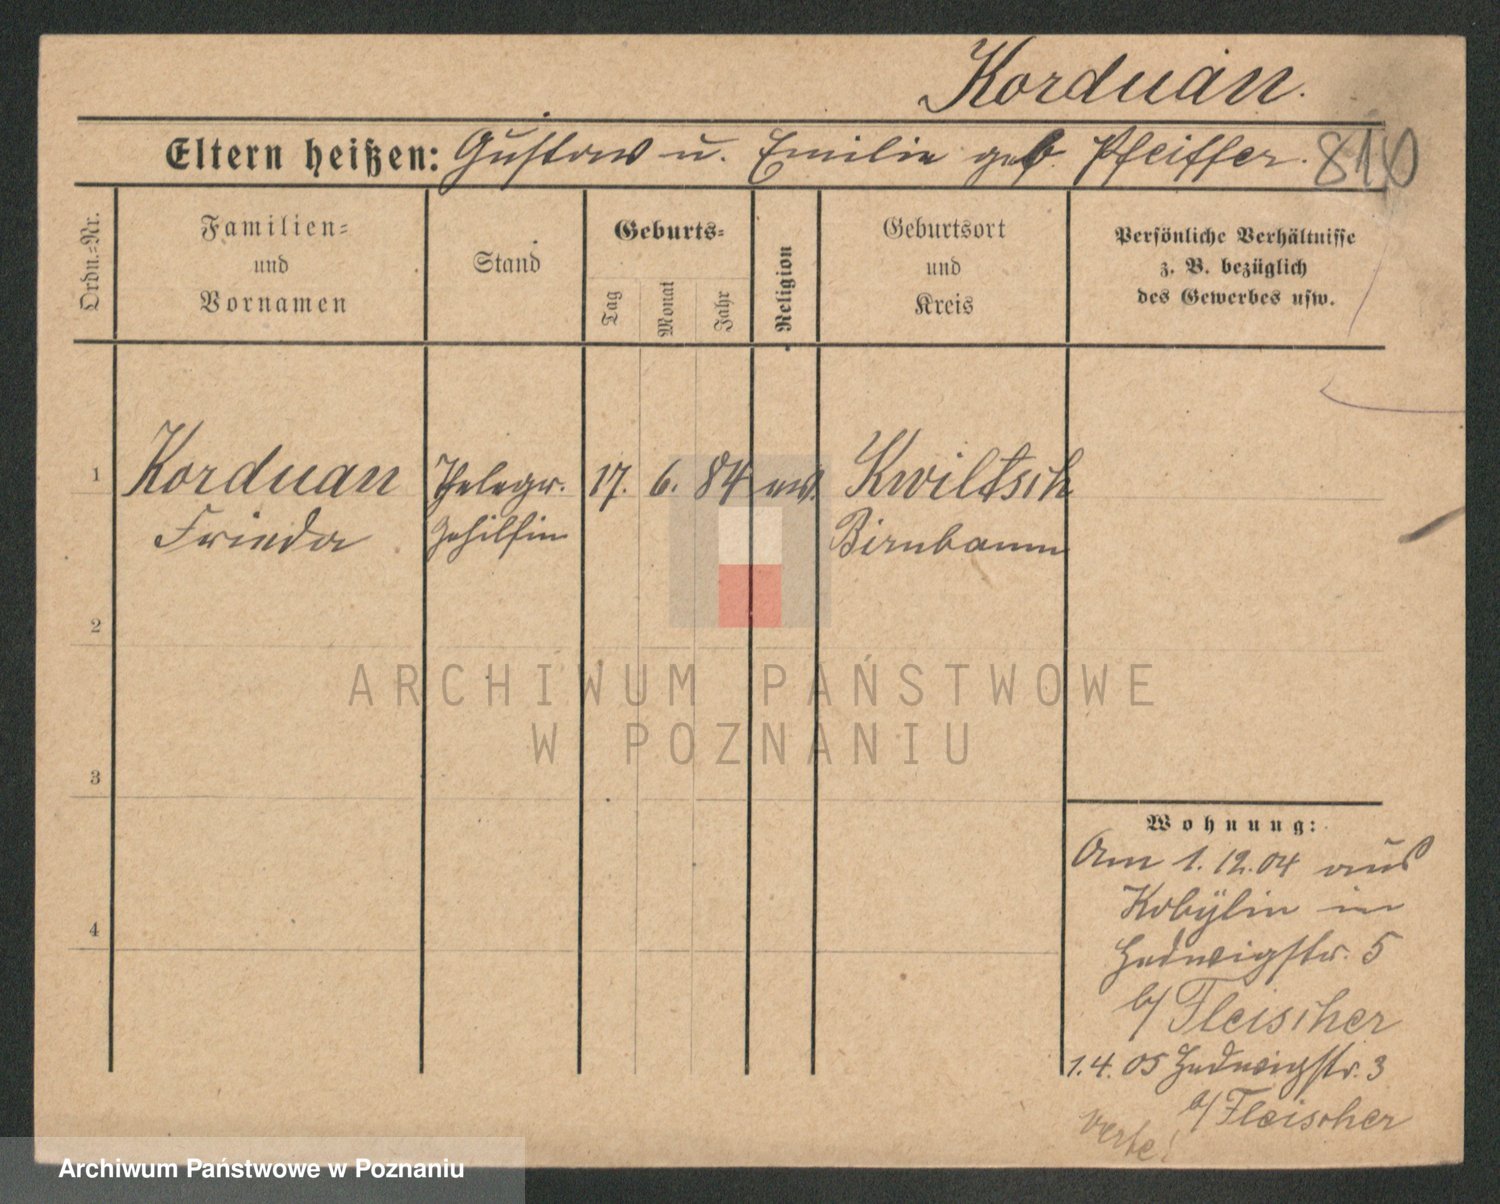 Korduan.
Eltern heißen: Gustav u. Emilie geb. Pfeiffer. 810
Ordn.-Nr.
Familien=
und
Vornamen
Stand
Geburts=
Tag
Monat
Jahr
Religion
Geburtsort
und
Kreis
Persönliche Verhältnisse
z. B. bezüglich
des Gewerbes usw.
1 Korduan Telegr. 17. 6. 84 ev. Kwiltsch
Frieda Gehilfin Birnbaum
2
3
4
Wohnung:
Am 1.12.04 aus
Kobylin in
Hedwigstr. 5
b/ Fleischer
1.4.05 Hedwigstr. 3
b/ Fleischer
verte!
ARCHIWUM PAŃSTWOWE
W POZNANIU
Archiwum Państwowe w Poznaniu